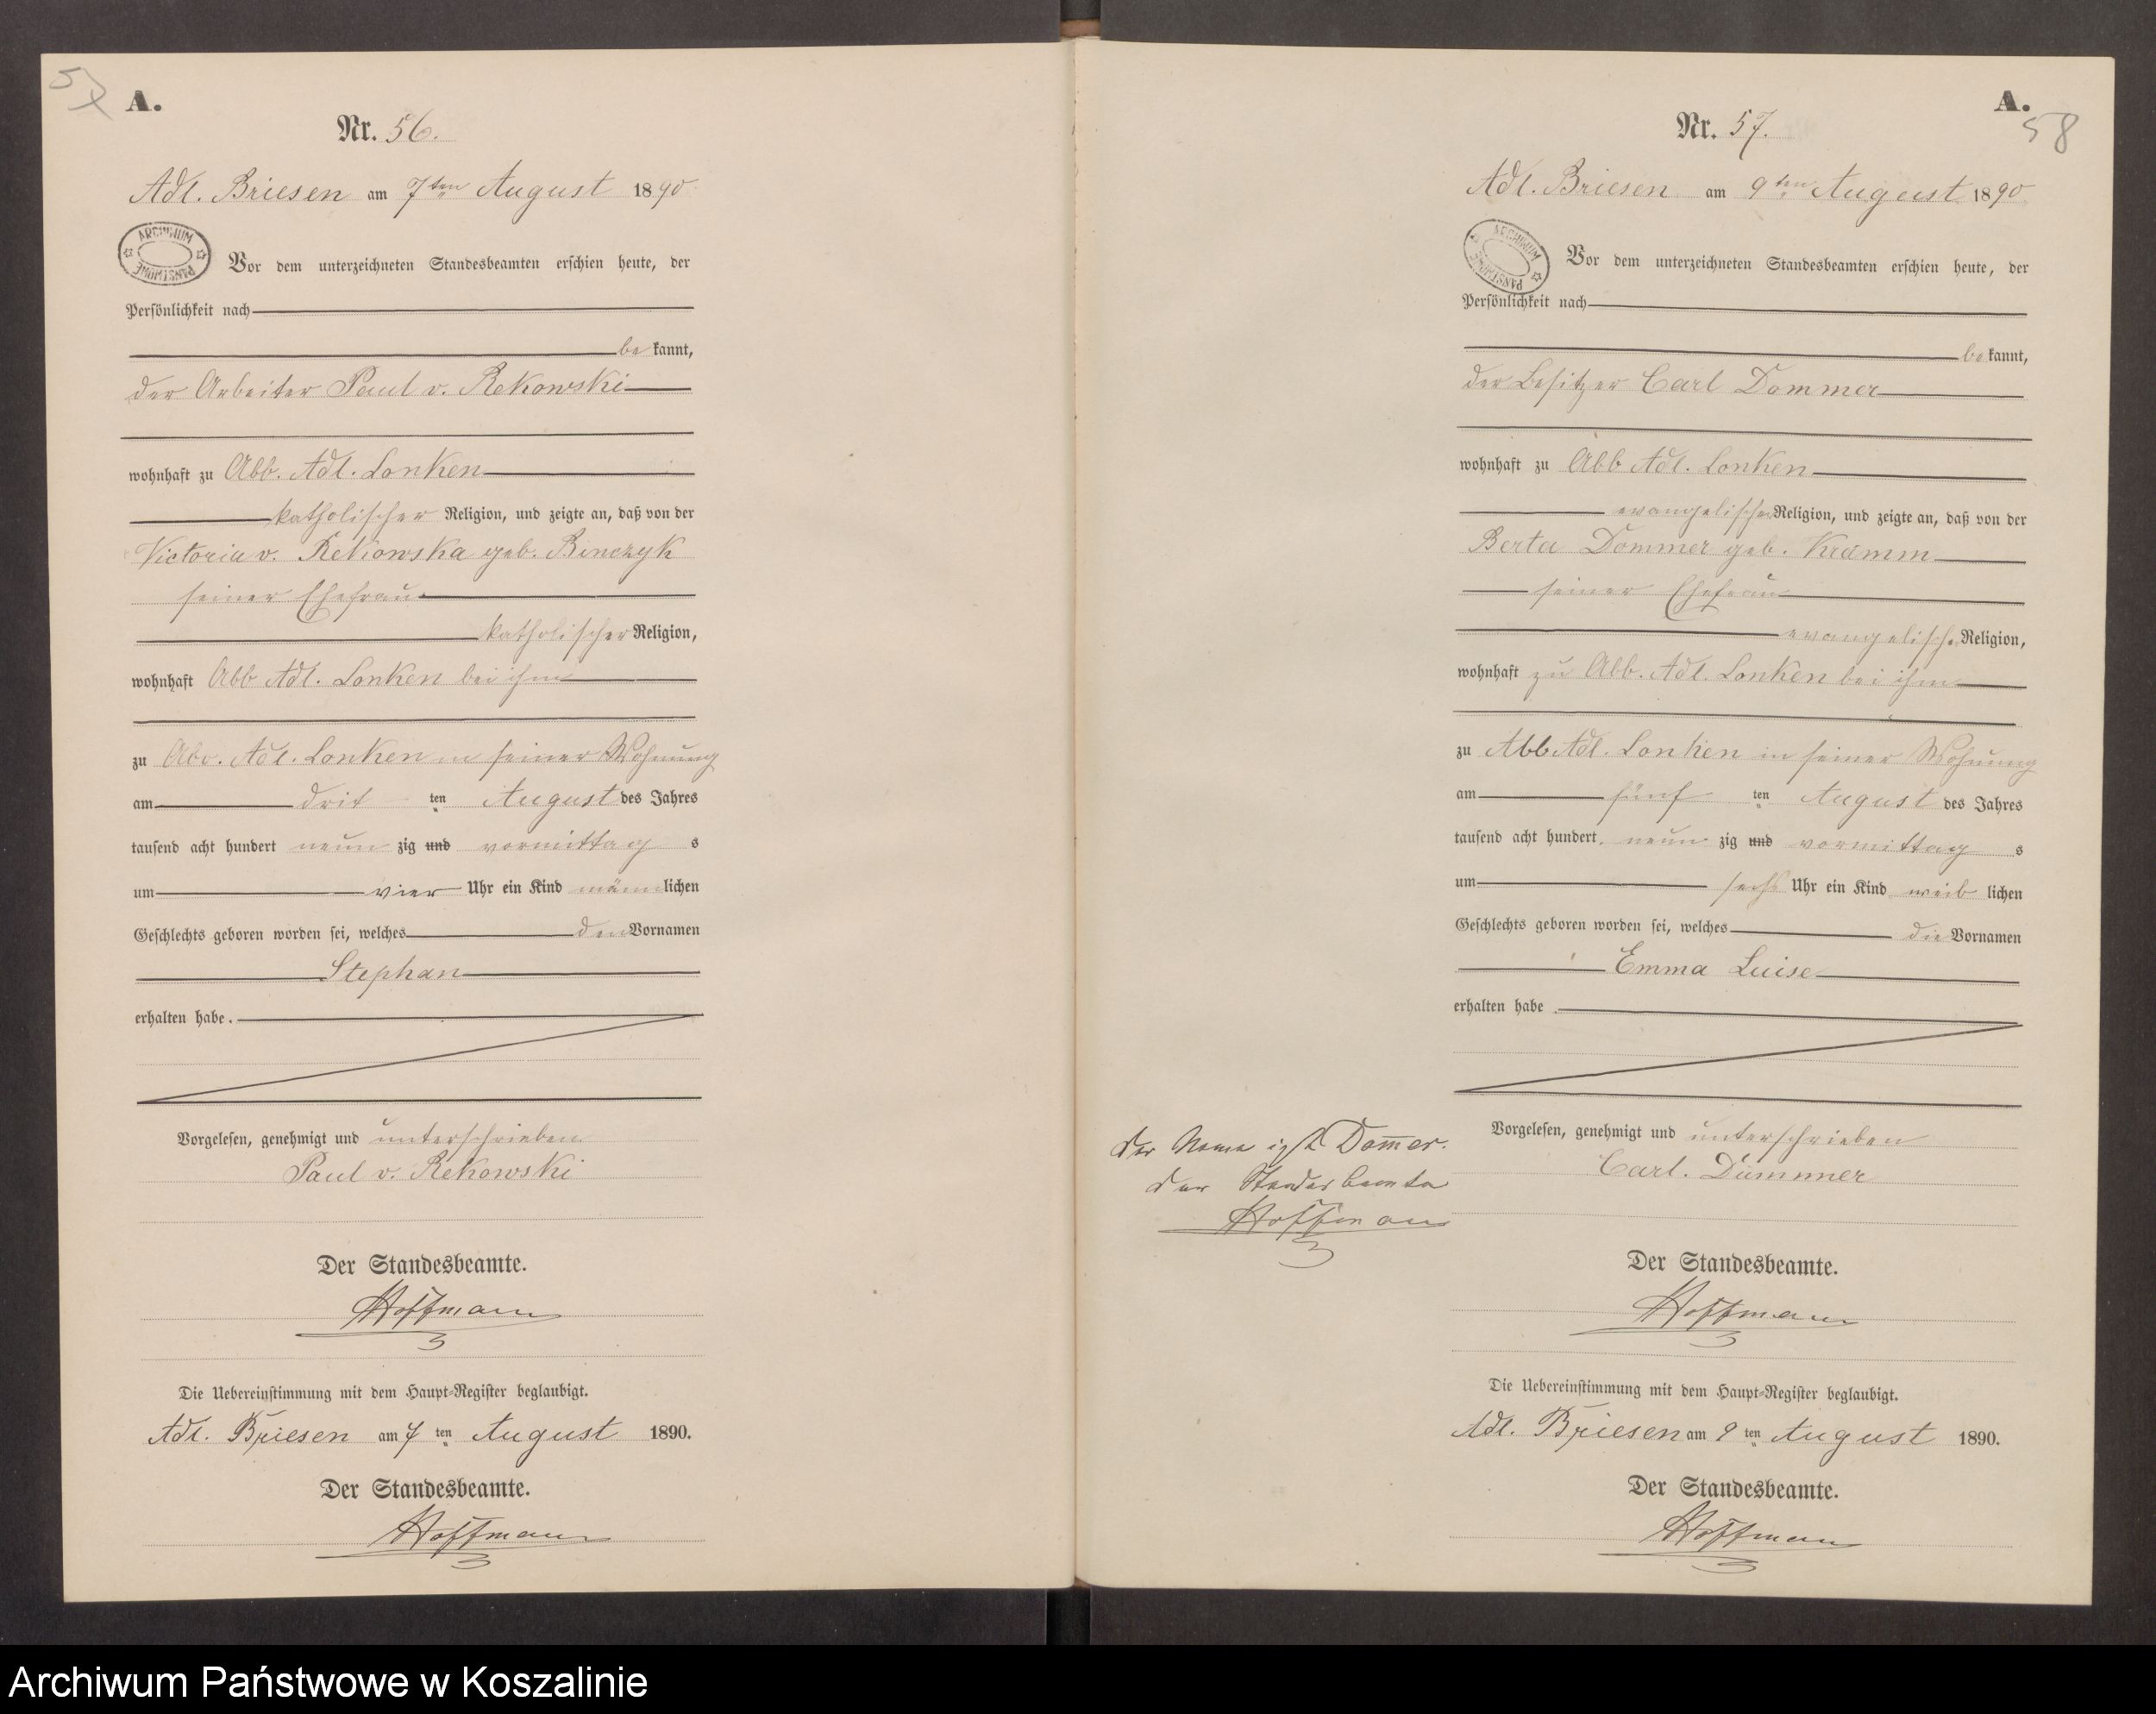 57
A.
Nr. 56.
Adl. Briesen am 7ten August 1890.
ARCHIWUM PAŃSTWOWE
Vor dem unterzeichneten Standesbeamten erschien heute, der
Persönlichkeit nach
bekannt,
der Arbeiter Paul v. Rekowski
wohnhaft zu Abb. Adl. Lonken
katholischer Religion, und zeigte an, daß von der
Victoria v. Rekowska geb. Binczyk
seiner Ehefrau
katholischer Religion,
wohnhaft Abb Adl. Lonken bei ihm
zu Abb. Adl. Lonken in seiner Wohnung
am drit ten August des Jahres
tausend acht hundert neun zig und vormittag s
um vier Uhr ein Kind männlichen
Geschlechts geboren worden sei, welches den Vornamen
Stephan
erhalten habe.
Vorgelesen, genehmigt und unterschrieben
Paul v. Rekowski
Der Standesbeamte.
Hoffmann
Die Uebereinstimmung mit dem Haupt-Register beglaubigt.
Adl. Briesen am 7 ten August 1890.
Der Standesbeamte.
Hoffmann
A.
58
Nr. 57.
Adl. Briesen am 9ten August 1890
ARCHIWUM PAŃSTWOWE
Vor dem unterzeichneten Standesbeamten erschien heute, der
Persönlichkeit nach
bekannt,
der Besitzer Carl Dommer
wohnhaft zu Abb Adl. Lonken
evangelischer Religion, und zeigte an, daß von der
Berta Dommer geb. Kramm
seiner Ehefrau
evangelischer Religion,
wohnhaft zu Abb. Adl. Lonken bei ihm
zu Abb Adl. Lonken in seiner Wohnung
am fünf ten August des Jahres
tausend acht hundert neun zig und vormittag s
um sechs Uhr ein Kind weib lichen
Geschlechts geboren worden sei, welches die Vornamen
Emma Luise
erhalten habe.
Vorgelesen, genehmigt und unterschrieben
Carl. Dümmer
der Name ist Dom̅er.
der Standesbeamte
Hoffmann
Der Standesbeamte.
Hoffmann
Die Uebereinstimmung mit dem Haupt-Register beglaubigt.
Adl. Briesen am 9 ten August 1890.
Der Standesbeamte.
Hoffmann
Archiwum Państwowe w Koszalinie